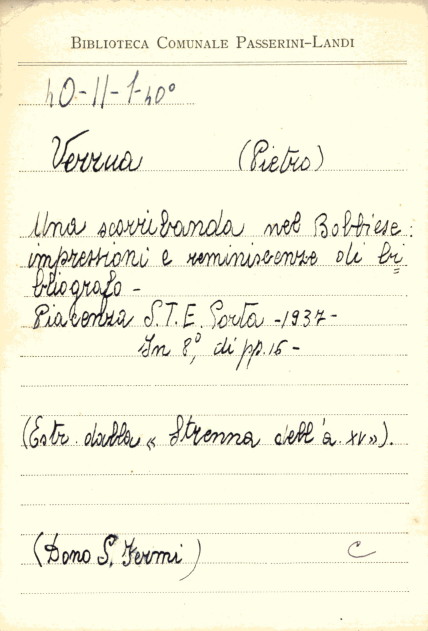 BIBLIOTECA COMUNALE PASSERINI-LANDI
40-II-1-40°
Verrua (Pietro)
Una scorribanda nel Bobbiese:
impressioni e reminiscenze di bi=
bliografo -
Piacenza S.T.E. Porta -1937-
In 8°, di pp. 16 -
(Estr. dalla « Strenna dell'a. XV»).
(Dono S. Fermi) C